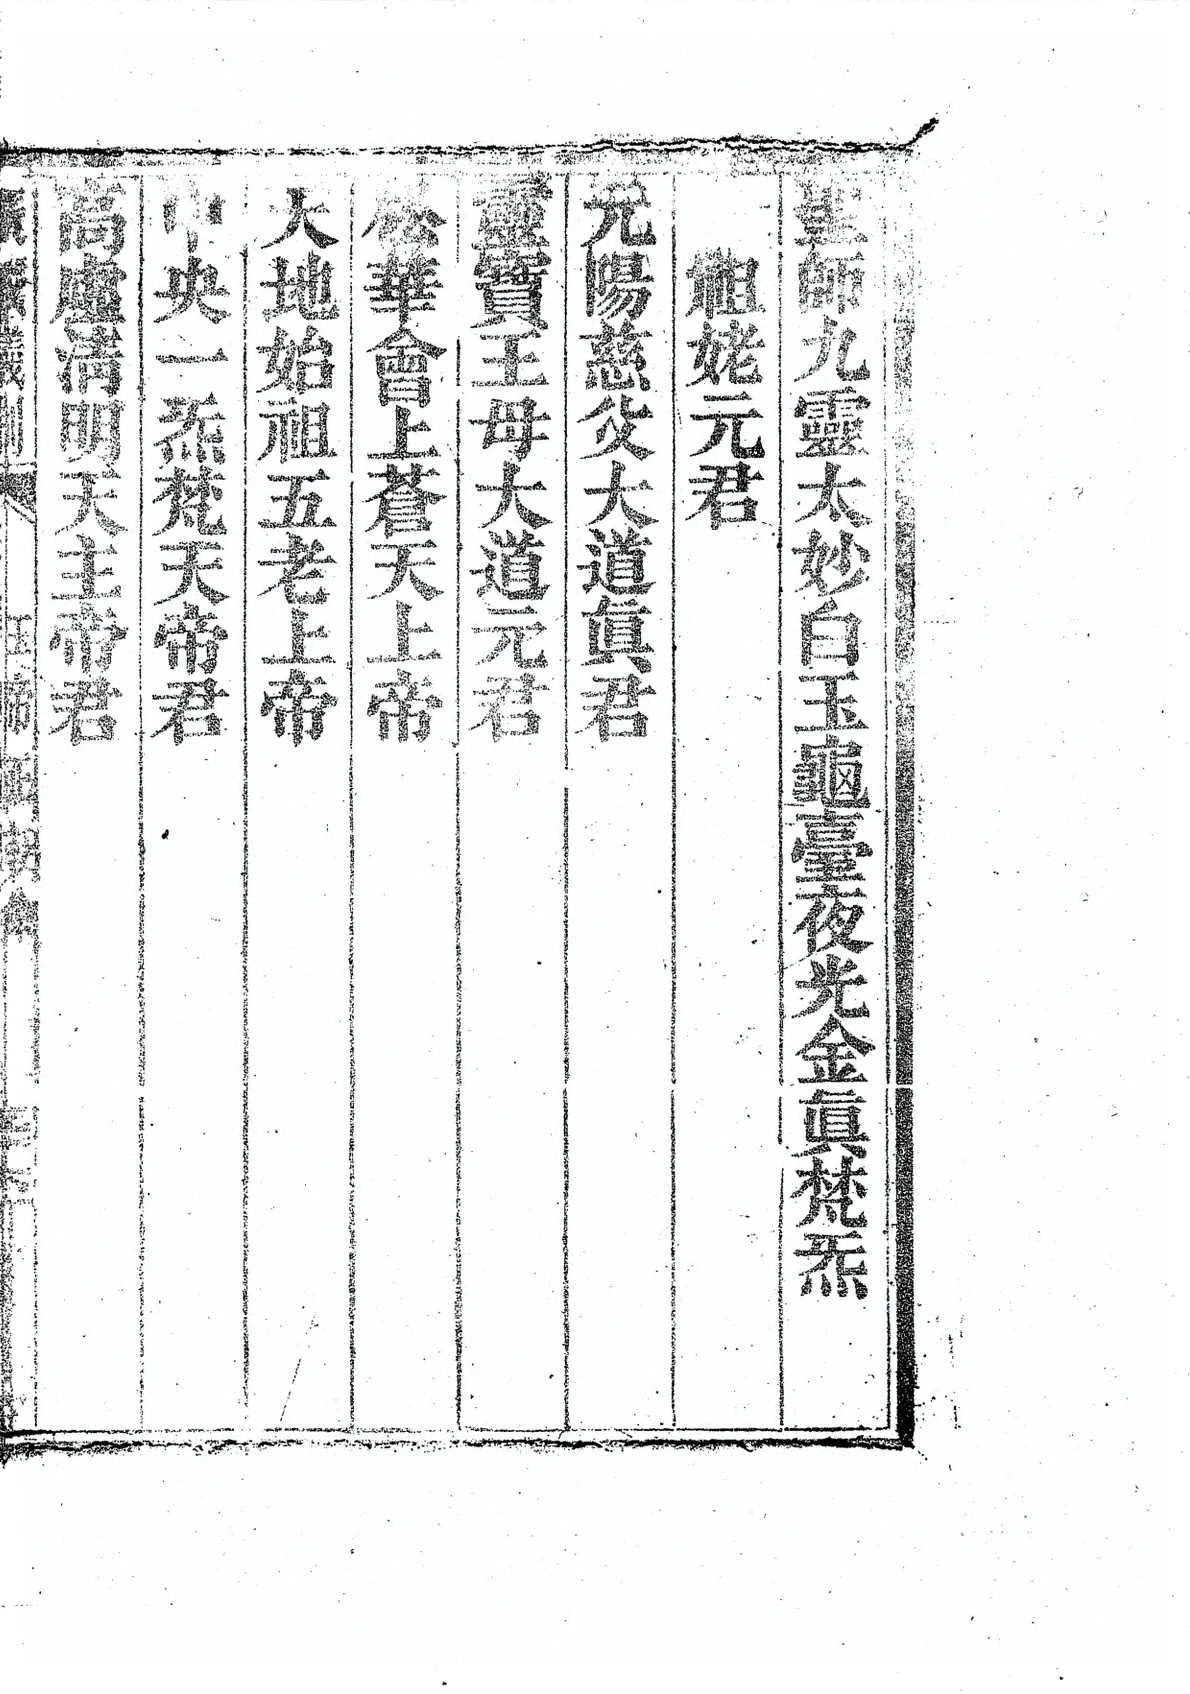 聖師九靈太妙白玉龜臺夜光金眞梵炁
祖姥元君
元陽慈父大道眞君
靈寶王母大道元君
松華會上蒼天上帝
大地始祖五老上帝
中央一炁梵天帝君
高虛清明天主帝君
儀制 玉帝正朝